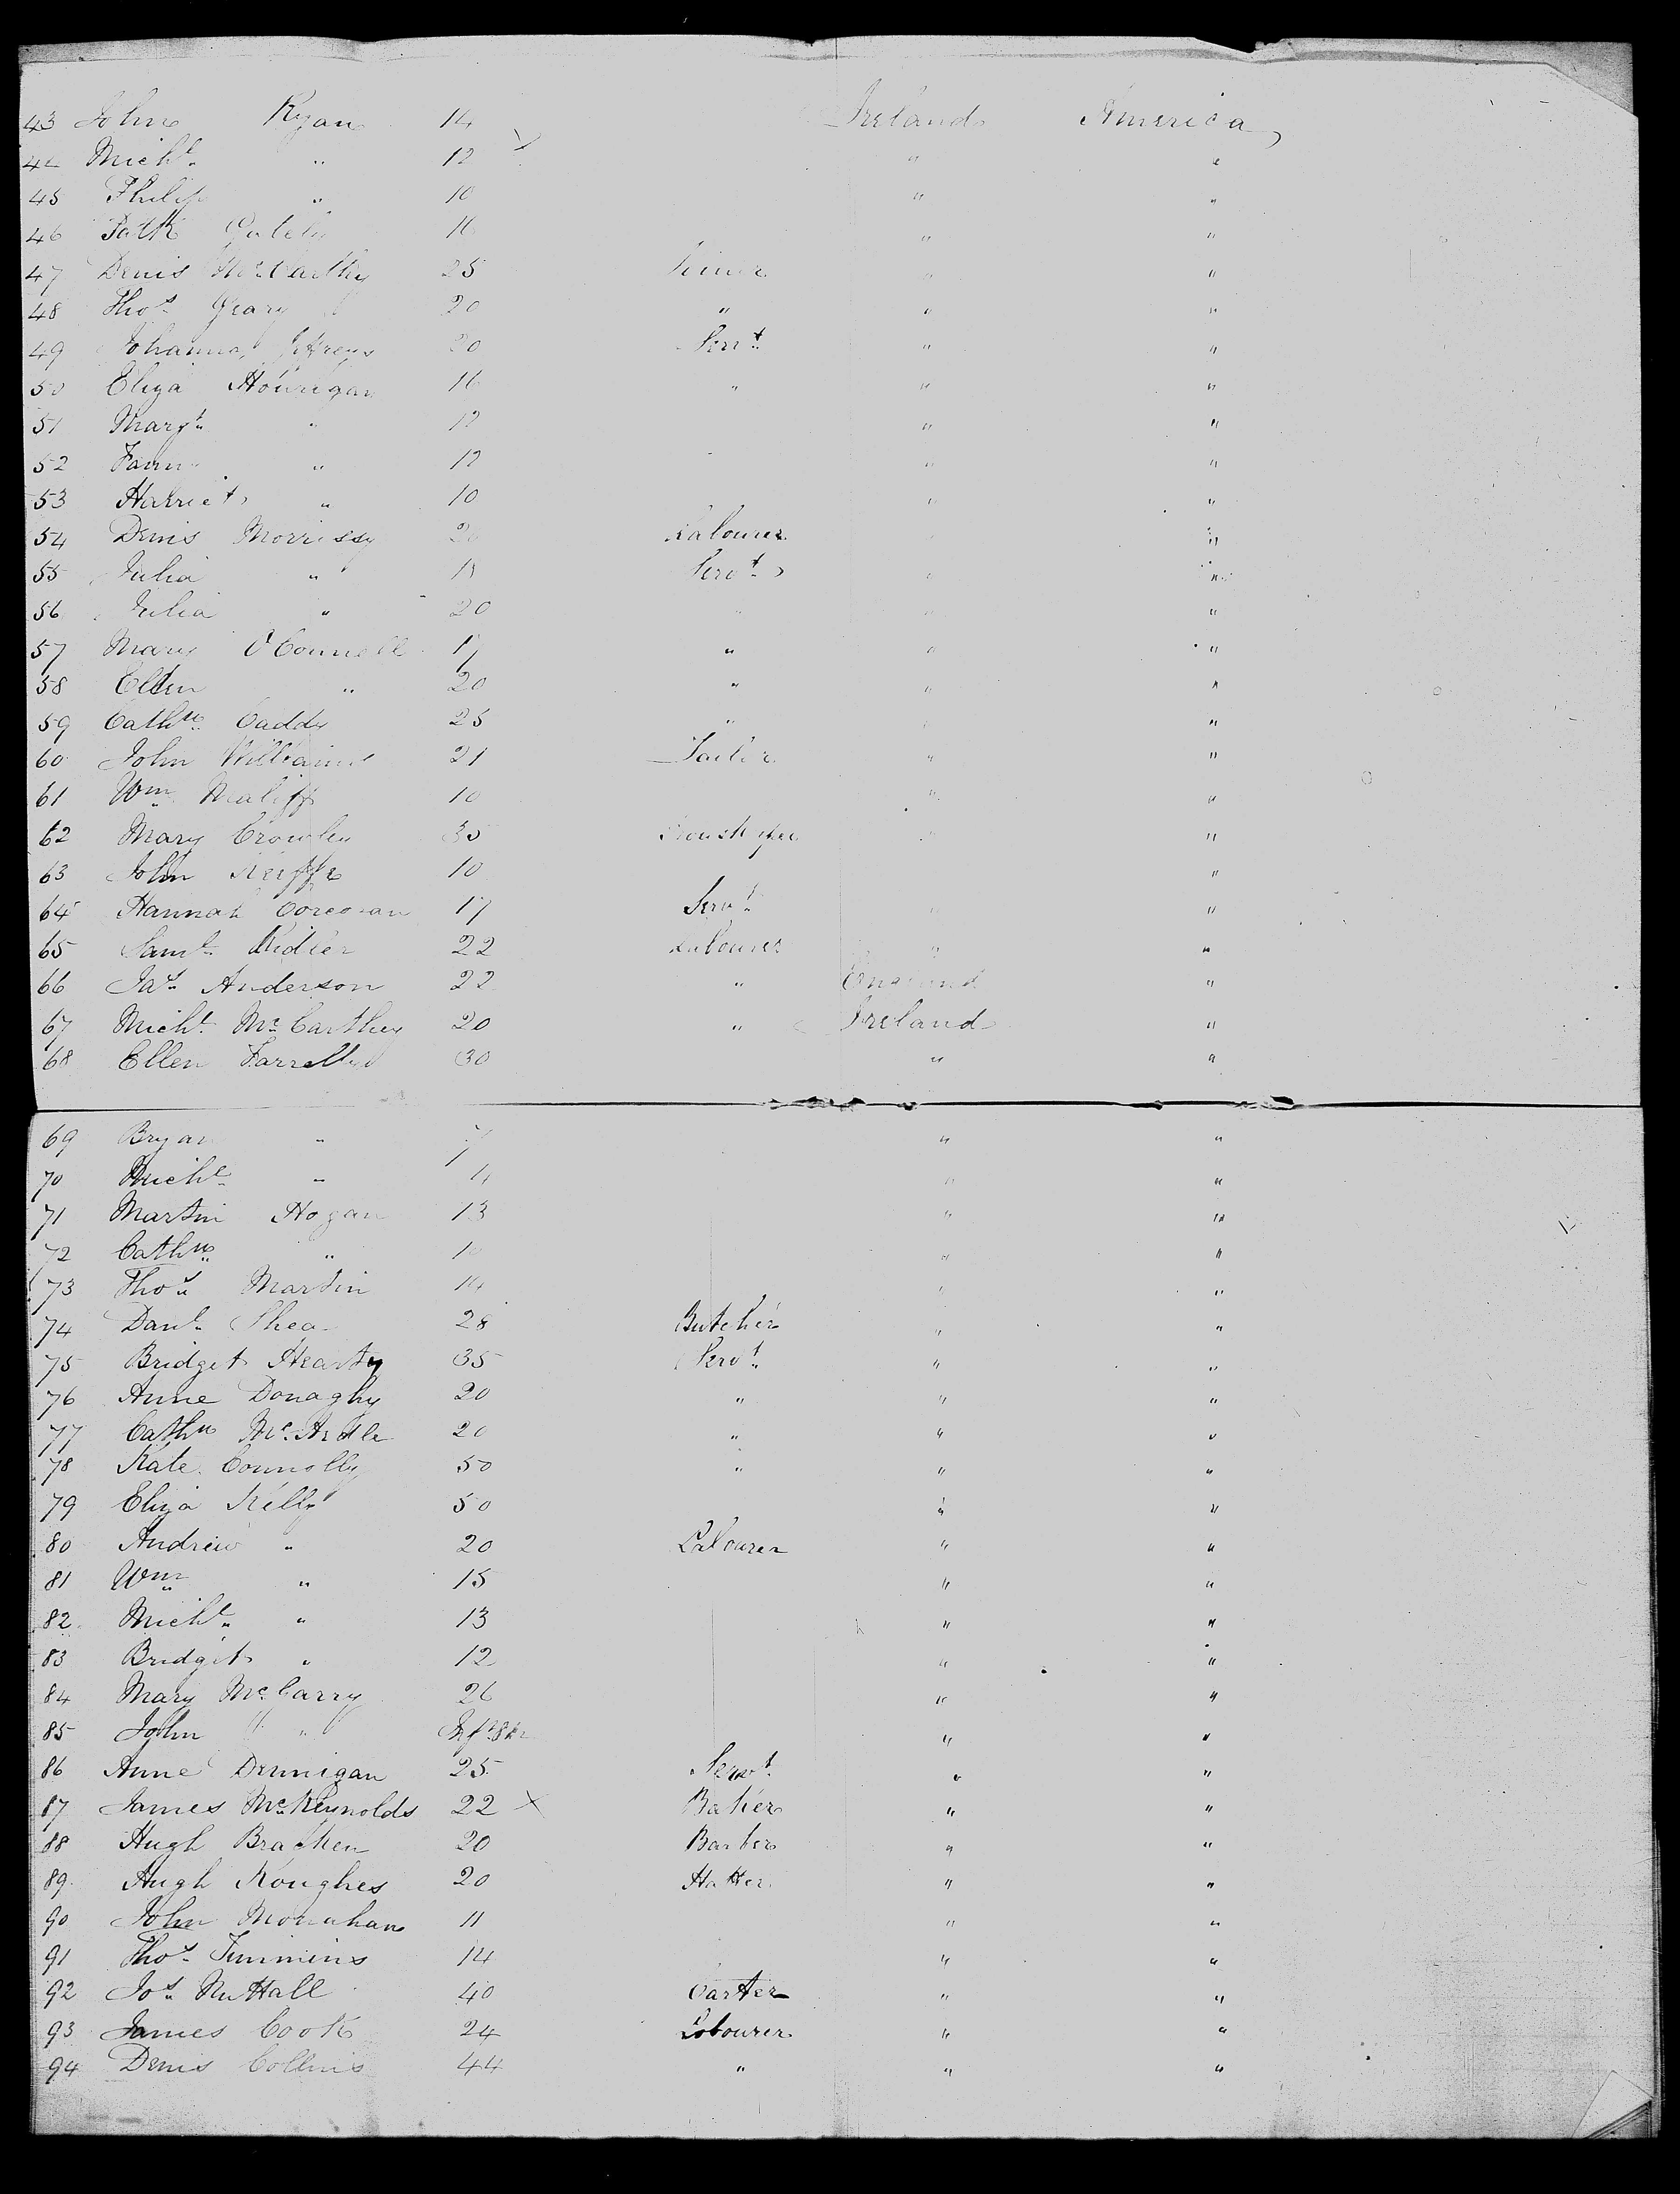 43 John Ryan 14 Ireland America
44 Michl " 12 " "
45 Philip " 10 " "
46 Patk 16 " "
47 Denis McCarthy 25 " "
48 Thos Geary 20 " " "
49 Johanna Jeffreys 20 Servt " "
50 Eliza Hourigan 16 " " "
51 Margt " 12 " "
52 " 12 " "
53 Harriet " 10 " "
54 Denis Morrissy 20 Labourer " "
55 Julia " Servt " "
56 Julia " 20 " " "
57 Mary O'Connell 17 " " "
58 Ellen " 20 " " "
59 Cathne Caddy 25 " " "
60 John Williams 21 Tailor " "
61 Wm 10 " "
62 Mary Crowley 35 " "
63 John Keiffe 10 "
64 Hannah Corcoran 17 Servt " "
65 Saml Ridler 22 Labourer " "
66 Jas Anderson 22 " England "
67 Michl McCarthey 20 " Ireland "
68 Ellen Farrelly 30 " "
69 Bryan " 7 " "
70 Michl " " "
71 Martin Hogan 13 " "
72 Cathne " " "
73 Thos Martin 14 " "
74 Danl Shea 28 Butcher " "
75 Bridget Hearty 35 Servt " "
76 Anne Donaghy 20 " " "
77 Cathne McArdle 20 " " "
78 Kate Connolly 50 " " "
79 Eliza Kelly 50 " "
80 Andrew " 20 Labourer " "
81 Wm " 15 " "
82 Michl " 13 " "
83 Bridget " 12 " "
84 Mary McCarry 26 " "
85 John " " "
86 Anne Dennigan 25 Servt " "
87 James McReynolds 22 X Baker " "
88 Hugh Bracken 20 Barber " "
89 Hugh Koughes 20 Hatter " "
90 John Monahan 11 " "
91 Thos Timmins 14 " "
92 Jos Nuttall 40 Carter " "
93 James Cook 24 Labourer " "
94 Denis Collins 44 " " "